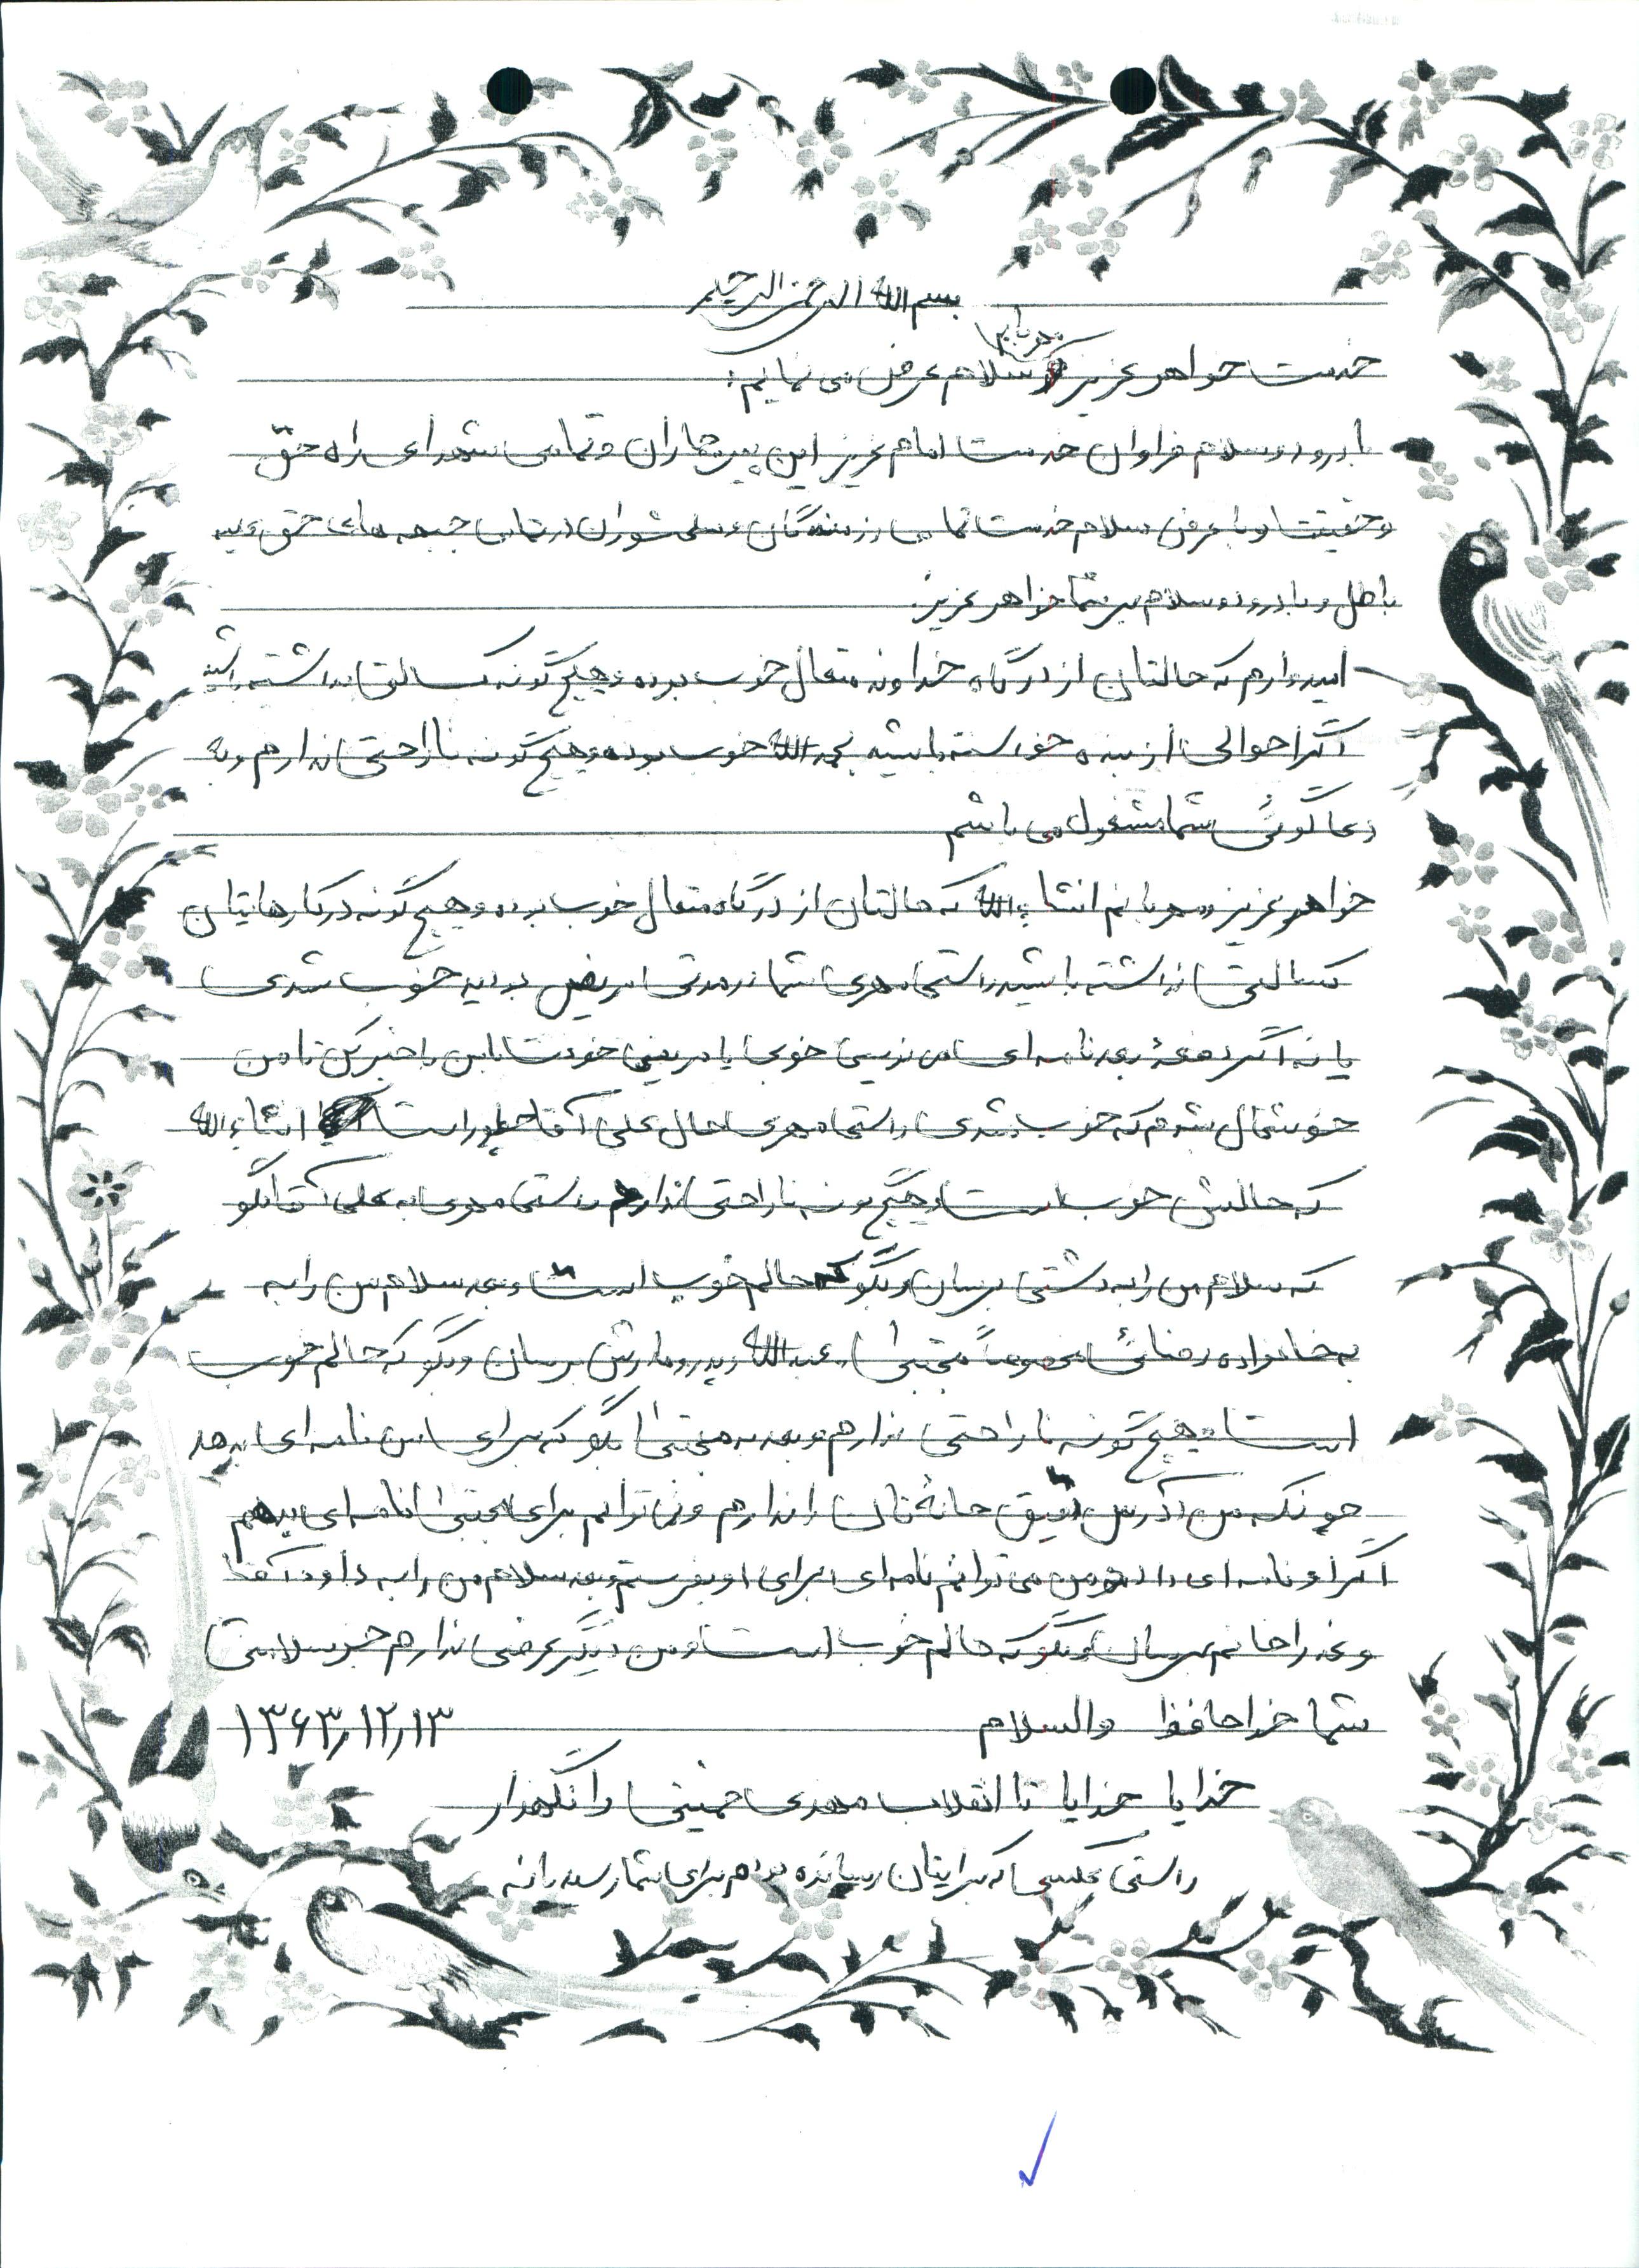 بسم الله الرحمن الرحیم
خدمت خواهر عزیز و مهربانم سلام عرض می نمایم:
با درود و سلام فراوان خدمت امام عزیز این پیر جماران و تمامی شهدای راه حق
و حقیقت و با عرض سلام خدمت تمامی رزمندگان و سلحشوران در تمامی جبهه های حق علیه
باطل و با درود و سلام بر شما خواهر عزیز.
امیدوارم که حالتان از درگاه خداوند متعال خوب بوده و هیچ گونه کسالتی نداشته باشید
اگر احوالی از بنده خواسته باشید بحمدالله خوب بوده و هیچ گونه ناراحتی ندارم و به
دعا گوئی شما مشغول می باشم
خواهر عزیز و مهربانم انشاءالله که حالتان از درگاه متعال خوب بوده و هیچ گونه در کارهایتان
کسالتی نداشته باشید راستی مهری شما در مدتی مریض بودید خوب شدی
یا نه اگر دفعۀ بعد نامه ای به من نویسی خوبی یا مریضی خودت را به من با خبر کن تا من
خوشحال بشوم که خوب شدی راستی مهری حال علی آقا چطور است انشاءالله
که حالش خوب است و هیچ گونه ناراحتی ندارد راستی مهری به علی آقا بگو
که سلام من را به دشتی برسان و بگو که حالم خوب است و بعد سلام من را به
به خانواده رضائی مخصوصاً مجتبی عبدالله و پدر و مادرش برسان و بگو که حالم خوب
است و هیچ گونه ناراحتی ندارم و بعد به مجتبی بگو که برای من نامه ای بدهد
چونکه من آدرس دقیق خانۀ تان را ندارم و نمی توانم برای مجتبی نامه ای بدهم
اگر او نامه ای داد من می توانم نامه ای برای او بفرستم و بعد سلام من را به داود آقا
و عذرا خانم برسان و بگو که حالم خوب است و من دیگر عرضی ندارم جز سلامتی
شما خداحافظ والسلام ۱۳۶۳٫۱۲٫۱۳
خدایا خدایا تا انقلاب مهدی خمینی را نگهدار
راستی عکسی که برایتان رسانده بودم برای شما رسید یا نه